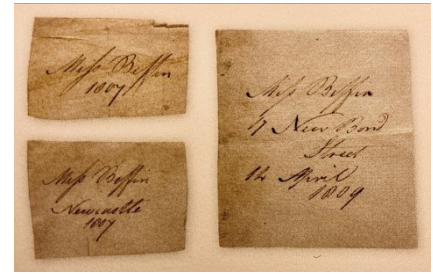 Miſs Beffin
1807
Miſs Beffin
Newcastle
1807
Miſs Beffin
New Bond
Street
April
1809